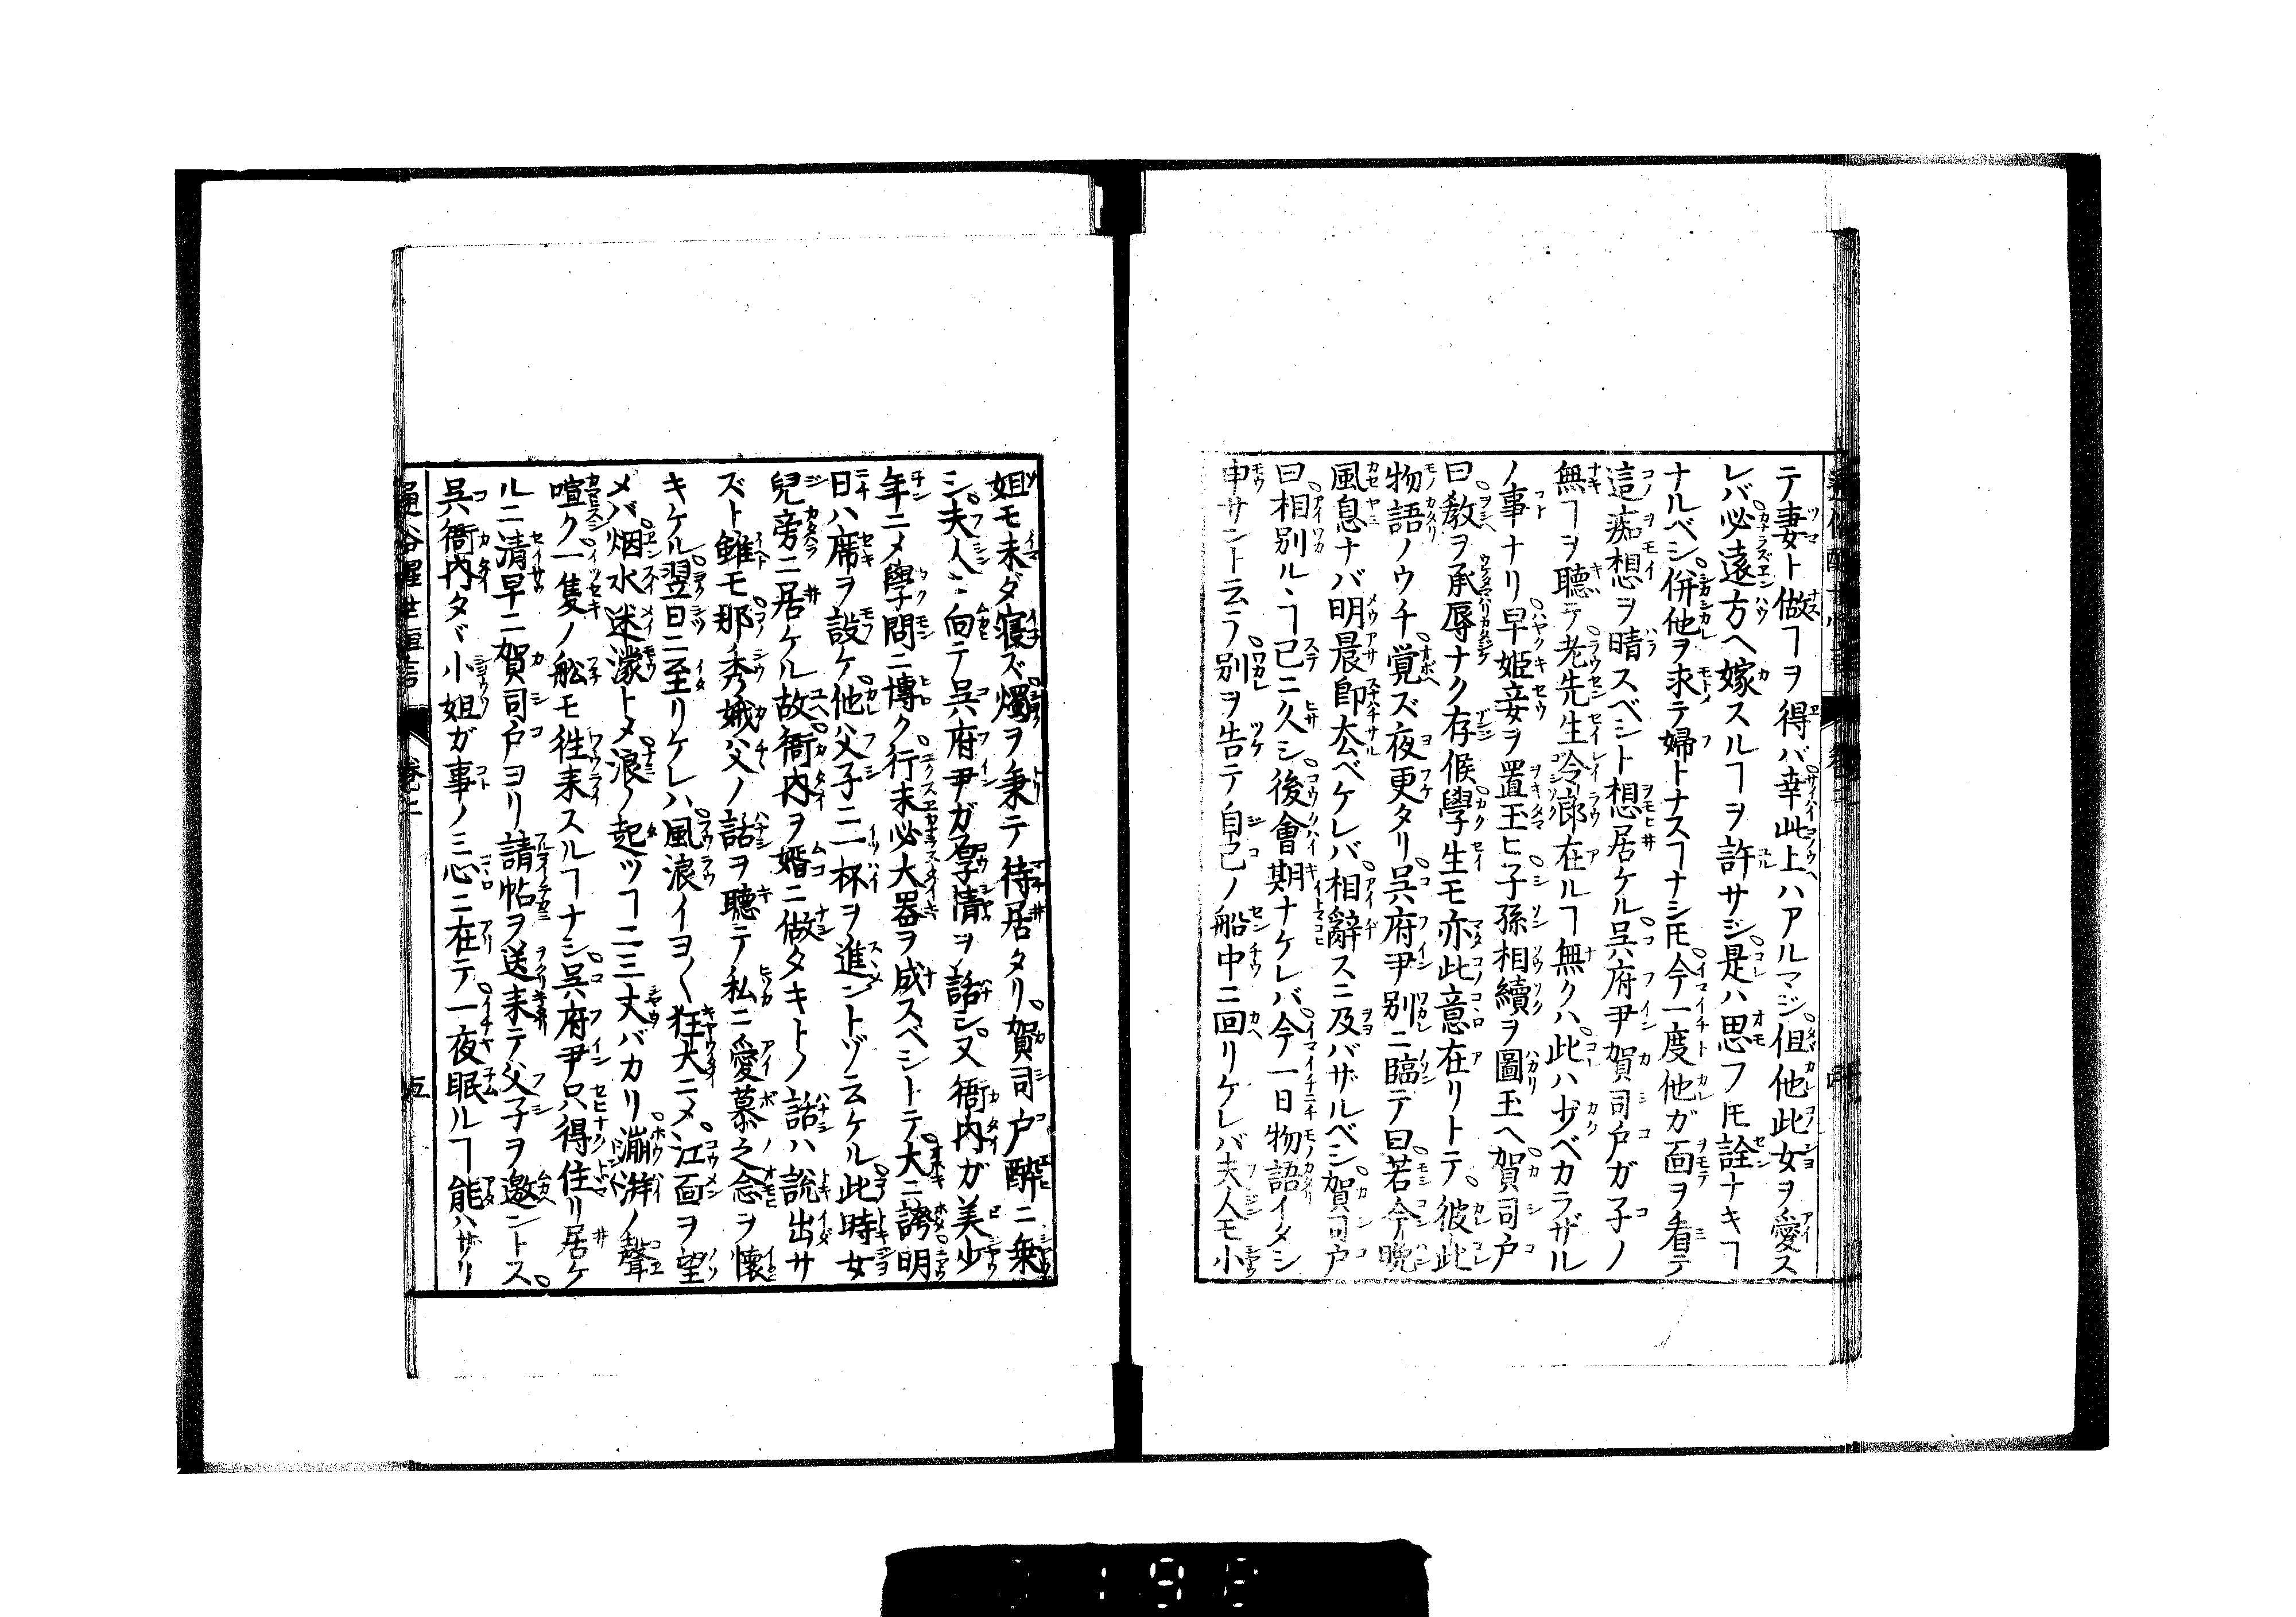 テ妻ト做ヿヲ得バ幸此上ハアルマジ但他此女ヲ愛ス
レバ必遠方ヘ嫁スルヿヲ許サジ是ハ思フ𪜈詮ナキヿ
ナルベシ併他ヲ求テ婦トナスヿナシ𪜈今一度他ガ面ヲ看テ
這痴想ヲ晴スベシト想居ケル呉府尹賀司戸ガ子ノ
無ヿヲ聴テ老先生令郎在ルヿ無クハ此ハ少ベカラザル
ノ事ナリ早姫妾ヲ置玉ヒ子孫相續ヲ圖玉ヘ賀司戸
曰教ヲ承辱ナク存候學生モ亦此意在リトテ彼此
物語ノウチ覚ズ夜更タリ呉府尹別ニ臨テ曰若今晩
風息ナバ明晨即厺ベケレバ相辭スニ及バザルベシ賀司戸
曰相別ルヽヿ已ニ久シ後會期ナケレバ今一日物語イタシ
申サントテ別ヲ告テ自己ノ船中ニ回リケレバ夫人モ小
姐モ未ダ寝ズ燭ヲ秉テ待居タリ賀司戸酔ニ乗
シ夫人ニ向テ呉府尹ガ厚情ヲ話シ又衙内ガ美少
年ニメ學問ニ博ク行末必大器ヲ成スベシトテ大ニ誇明
日ハ席ヲ設ケ他父子ニ一杯ヲ進ントゾ云ケル此時女
兒旁ニ居ケル故衙内ヲ婿ニ做タキトノ話ハ説出サ
ズト雖モ那秀娥父ノ話ヲ聴テ私ニ愛慕之念ヲ懐
キケル翌日ニ至リケレハ風浪イヨ〱狂大ニメ江面ヲ望
メバ烟水迷濛トメ浪ノ起ツヿ二三丈バカリ漰湃ノ聲
喧ク一隻ノ舩モ徃来スルヿナシ呉府尹只得住リ居ケ
ルニ清早ニ賀司戸ヨリ請帖ヲ送来テ父子ヲ邀ントス
呉衙内タヾ小姐ガ事ノミ心ニ在テ一夜眠ルヿ能ハザリ
通俗醒世恒言 卷二 五